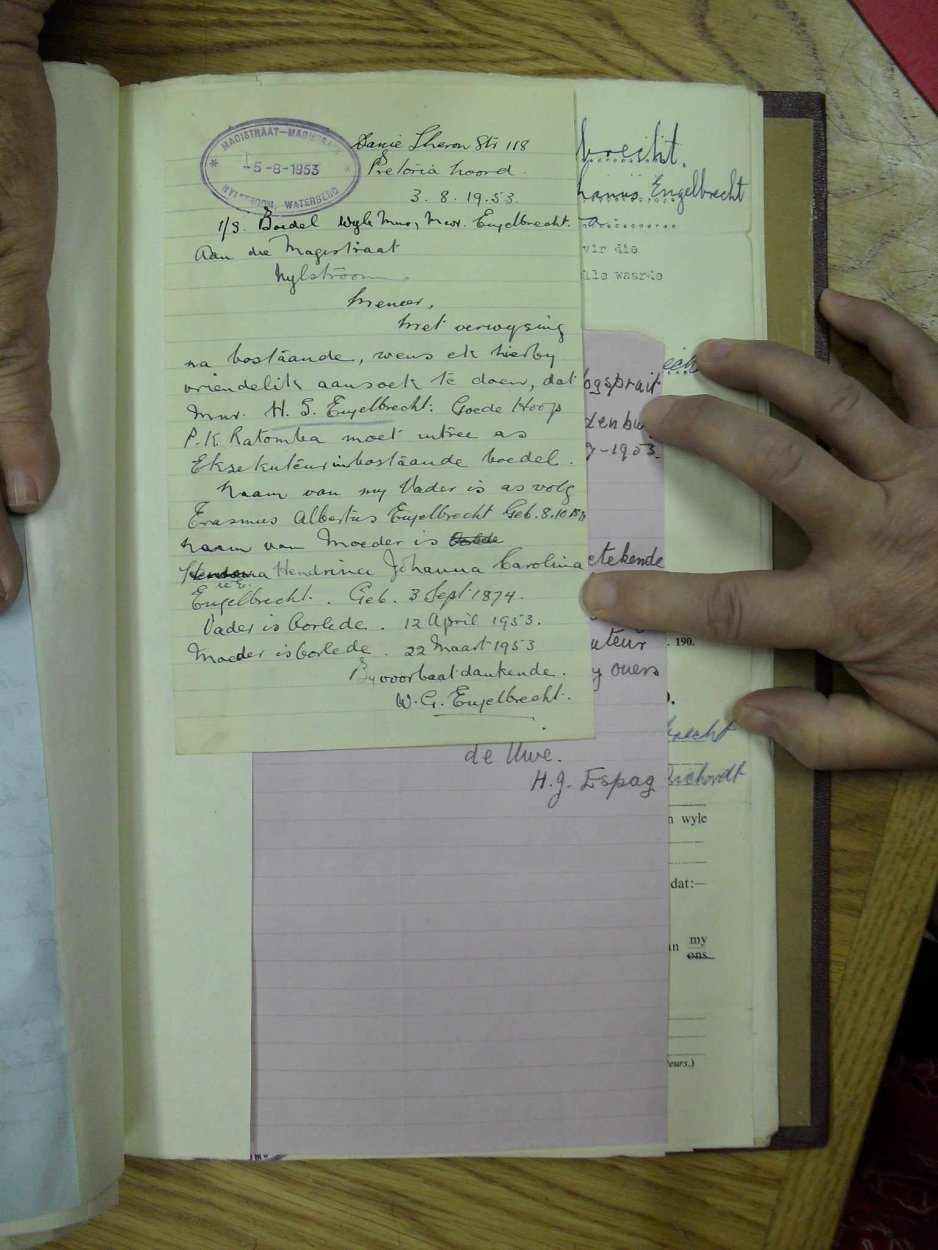 MAGISTRAAT—MAGISTRATE
-5-8-1953
NYLSTROOM, WATERBERG
Danie Theron Str 118
Pretoria Noord
3.8.1953.
I/S. Boedel Wyle Mnr, Mevr. Engelbrecht.
Aan die Magistraat
Nylstroom
Meneer,
Met verwysing
na bostaande, wens ek hierby
vriendelik aansoek te doen, dat
Mnr. H. S. Engelbrecht: Goede Hoop
P.K. Ratomba moet intree as
Eksekuteur in bostaande boedel.
Naam van my Vader is as volg
Erasmus Albertus Engelbrecht Geb. 8.10
naam van Moeder is
Hendrina Johanna Carolina
Engelbrecht. Geb. 3 Sept 1874.
Vader is oorlede. 12 April 1953.
Moeder is oorlede. 22 Maart 1953
By voorbaat dankende.
W. G. Engelbrecht.
brecht.
hanus Engelbrecht
a.
vir die
lle waarde
ogspruit
denbu
-1953.
etekende
uteur
190.
y ouers
recht
de Uwe.
H.J. Espag
n wyle
dat:—
an my
ons
eurs.)